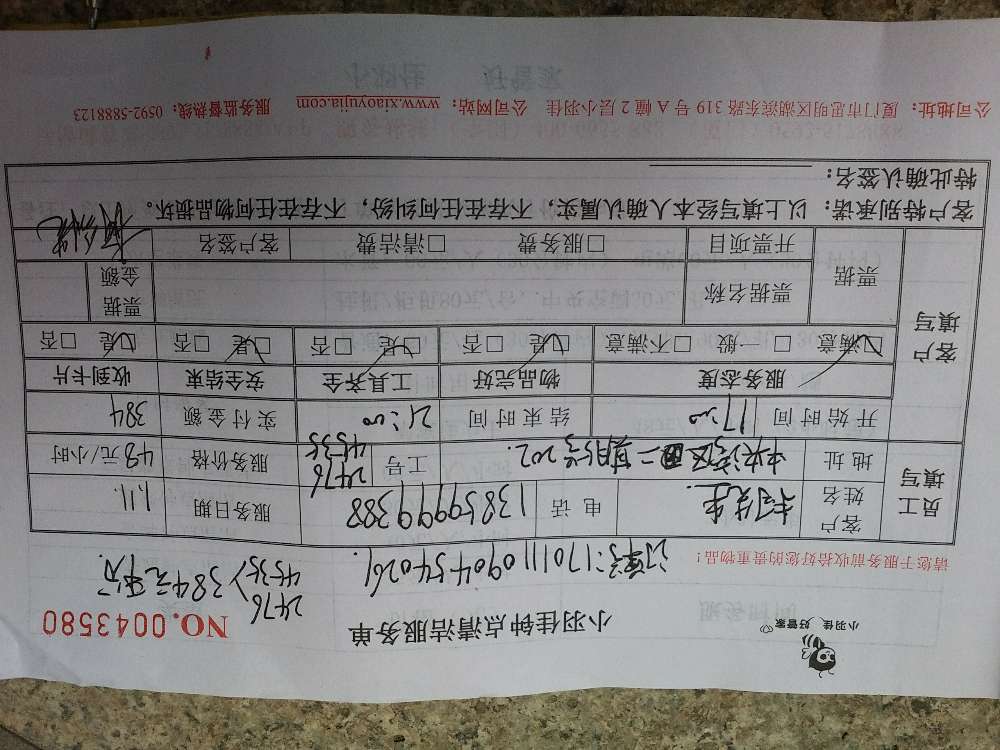 小羽佳，好管家
小羽佳钟点清洁服务单
NO.0043580
2476
4535 384元
请您于服务前收拾好您的贵重物品!
订单号:170111090454026
员工填写
客户姓名 先生 电话 13859999388 服务日期 1.11.
地址 中央湾区二期 号202. 工号 2476 4535 服务价格 48元/小时
开始时间 17:00 结束时间 21:00 实付金额 384
客户填写
服务态度 物品完好 工具齐全 安全结束 收到卡片
□满意 □一般 □不满意 □是 □否 □是 □否 □是 □否 □是 □否
票据 票据名称 票据金额
开票项目 □服务费 □清洁费 客户签名
客户特别承诺：以上填写经本人确认属实，不存在任何纠纷，不存在任何物品损坏。
特此确认签名：
公司地址：厦门市思明区湖滨东路 319 号 A 幢 2 层小羽佳 公司网站：www.xiaoyujia.com 服务监督热线：0592-5888123